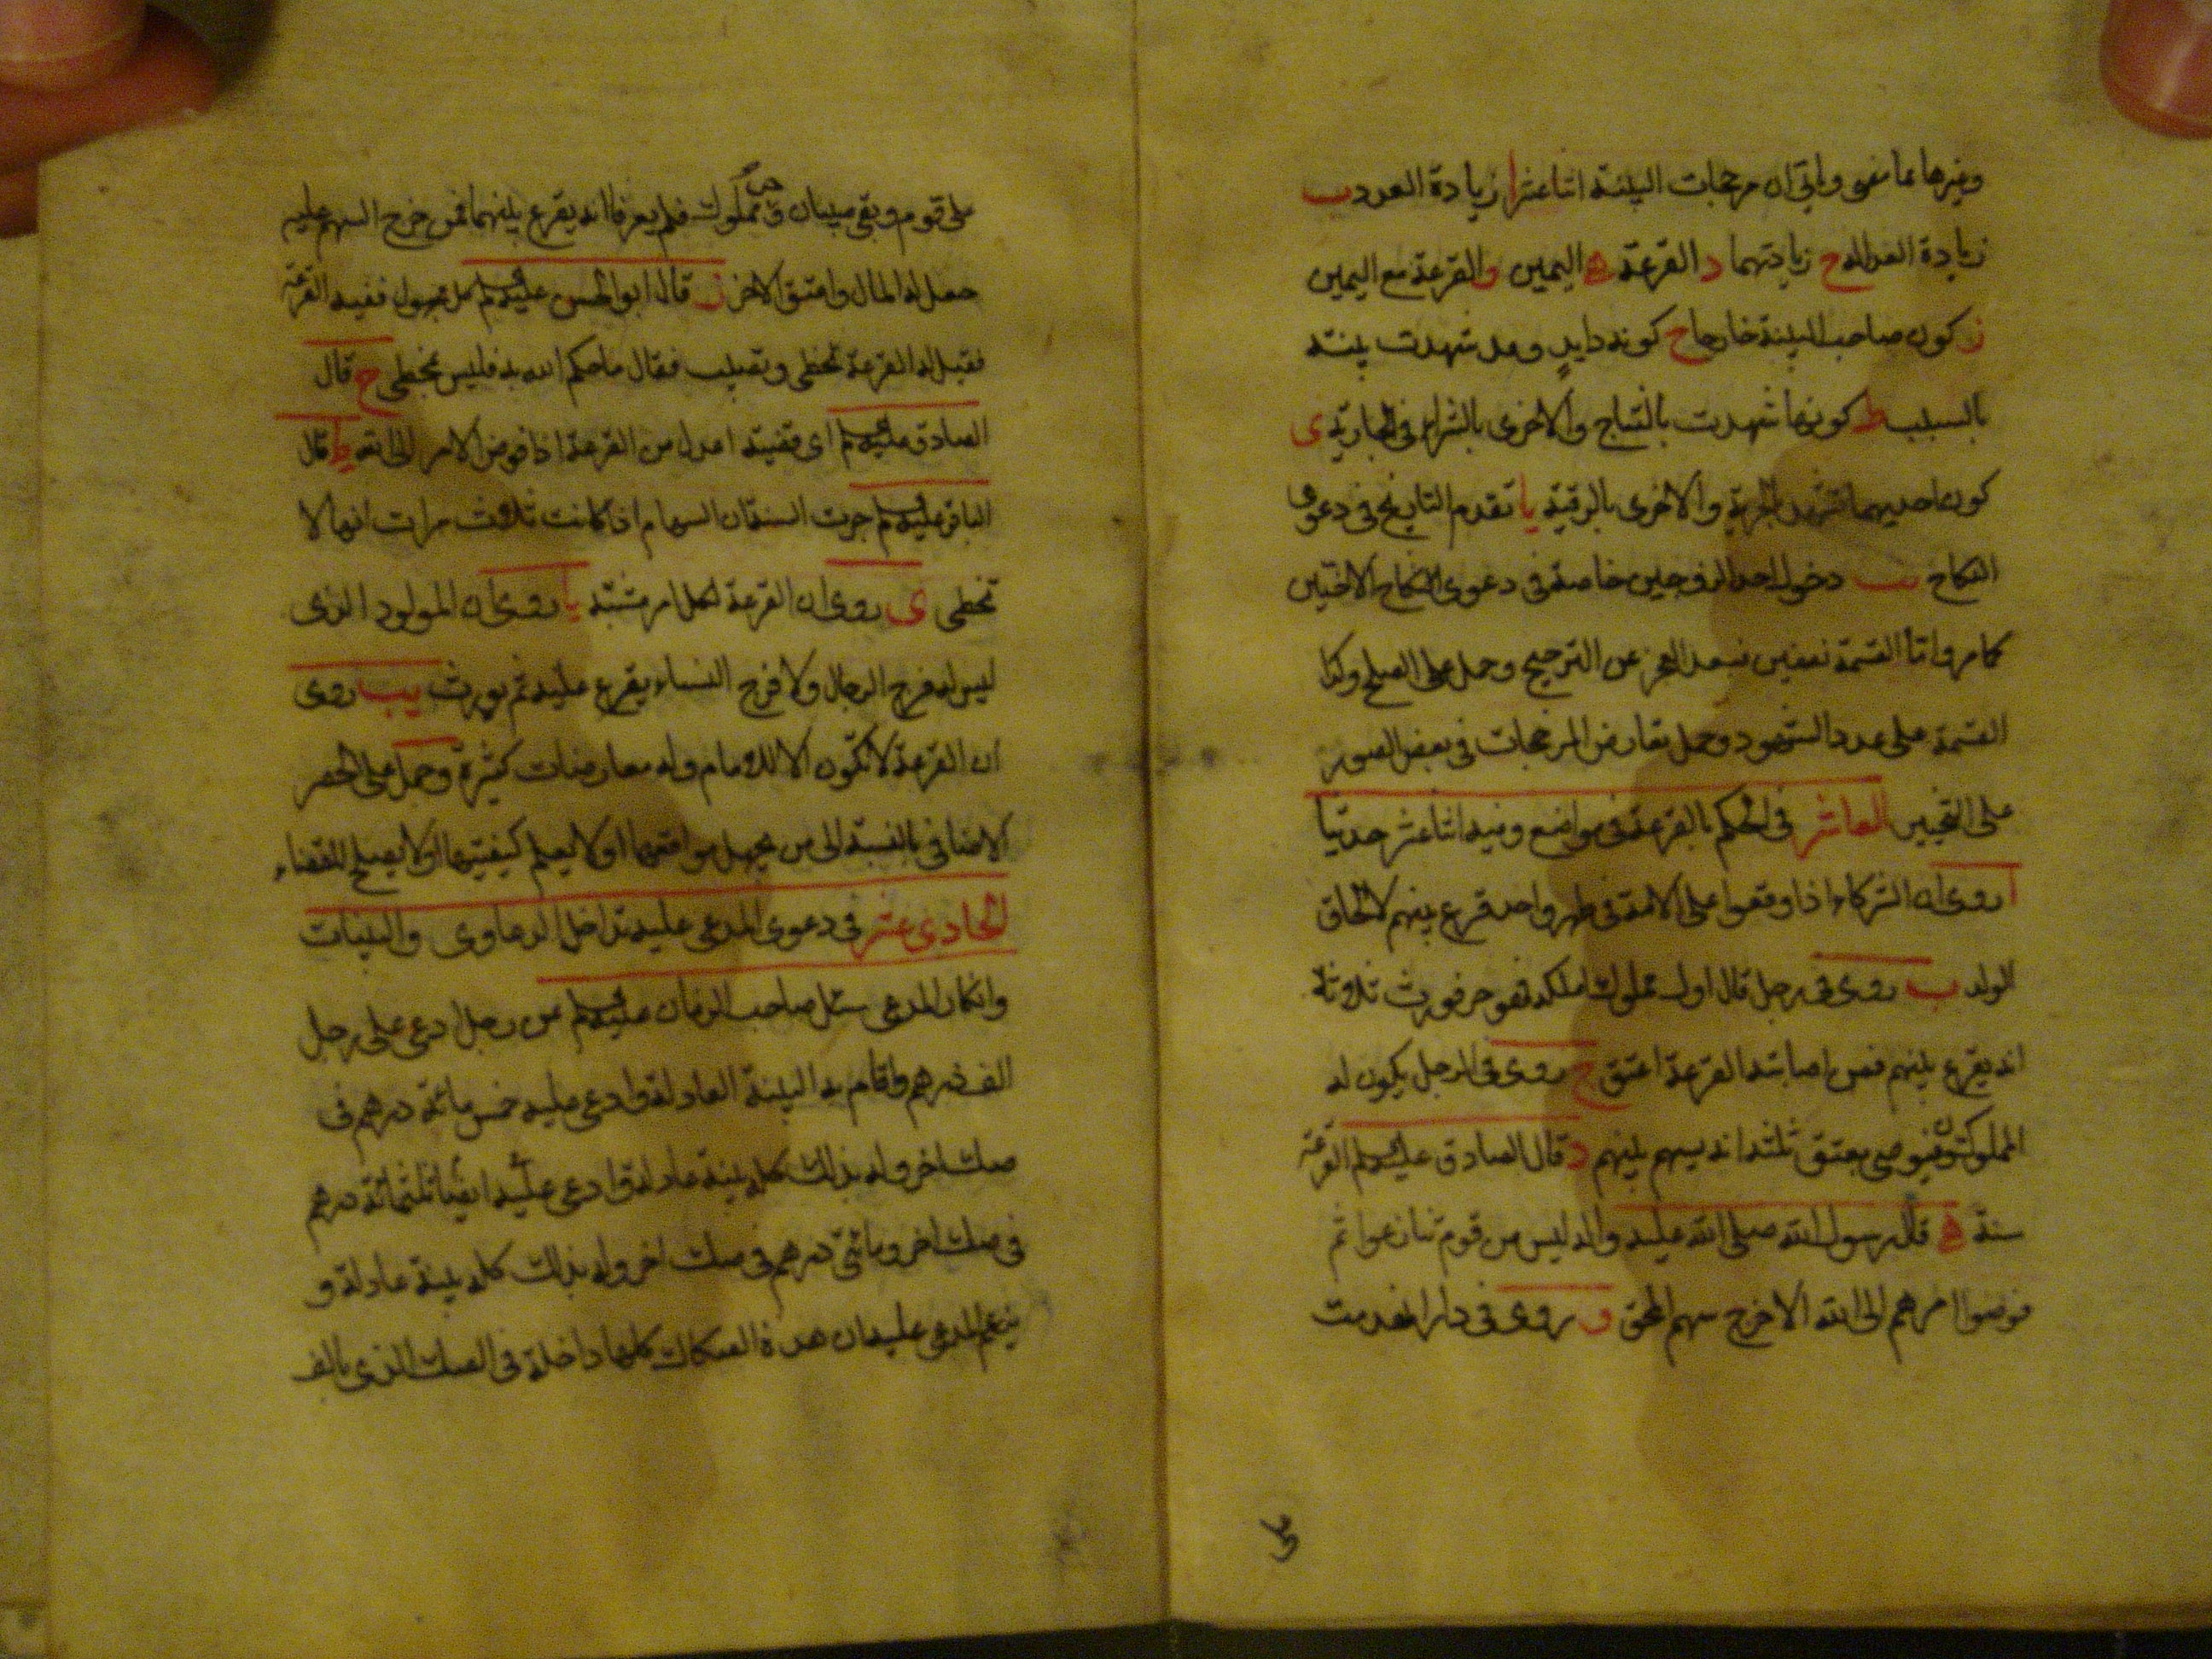 وغيرها مما مضى وياتى ان مرجحات البينة اثنا عشر ا زيادة العدد ب
زيادة العدالة ج زيادتهما د القرعة ه اليمين و القرعة مع اليمين
ز كون صاحب البينة خارجا ح كونه ذا يد وقد شهدت بينته
بالسبب ط كونها شهدت بالنتاج والاخرى بالشراء فى الجارية ى
كون احديهما تشهد بالحرية والاخرى بالرقية يا تقدم التاريخ فى دعوى
النكاح يب دخول احد الزوجين خاصة فى دعوى النكاح الاختين
كما مر واما القسمة نصفين فبعد العجز عن الترجيح وحمل على الصلح وكذا
القسمة على عدد الشهود وحمل تعارض المرجحات فى بعض الصور
على التخيير العاشر فى الحكم بالقرعة فى مواضع وفيه اثنا عشر حديثا
ا روى ان الشركاء اذا وقعوا على الامة فى طهر واحد قرع بينهم لالحاق
الولد ب روى فى رجل قال اول مملوك املكه فهو حر فورث ثلاثة
انه يقرع بينهم فمن اصابته القرعة اعتق ج روى فى الرجل يكون له
المملوكون فيوصى بعتق ثلثه انه يسهم بينهم د قال الصادق عليه السلام القرعة
سنة ه قال رسول الله صلى الله عليه واله ليس من قوم تنازعوا ثم
فوضوا امرهم الى الله الا خرج سهم المحق و روى فى دار انهدمت
على قوم وبقى صبيان حر ومملوك فلم يعرفا انه يقرع بينهما فمن خرج السهم عليه
جعل له المال واعتق الاخر ز قال ابو الحسن عليه السلم كل مجهول ففيه القرعة
فقيل له القرعة تخطى وتصيب فقال ما حكم الله به فليس بمخطى ح قال
الصادق عليه السلم اى قضية اعدل من القرعة اذا فوض الامر الى الله ط قال
الباقر عليه السلم جرت السنة ان السهام اذا كانت ثلاث مرات انها لا
تخطى ى روى ان القرعة لكل امر مشتبه يا روى ان المولود الذى
ليس له فرج الرجال ولا فرج النساء يقرع عليه ثم يورث يب روى
ان القرعة لا تكون الا للامام وله معارضات كثيرة وحمل على الحصر
الاضافى بالنسبة الى من يجهل مواقعها او لا يعلم كيفيتها او لا يصلح للقضاء
الحادى عشر فى دعوى المدعى عليه تداخل الدعاوى والبينات
وانكار المدعى سئل صاحب الزمان عليه السلم عن رجل ادعى على رجل
الف درهم واقام به البينة العادلة وادعى عليه خمس مائة درهم فى
صك اخر وله بذلك كله بينة عادلة وادعى عليه ايضا ثلثمائة درهم
فى صك اخر ومائتى درهم فى صك اخر وله بذلك كله بينة عادلة و
يزعم المدعى عليه ان هذه الصكاك كلها داخلة فى الصك الذى بالف